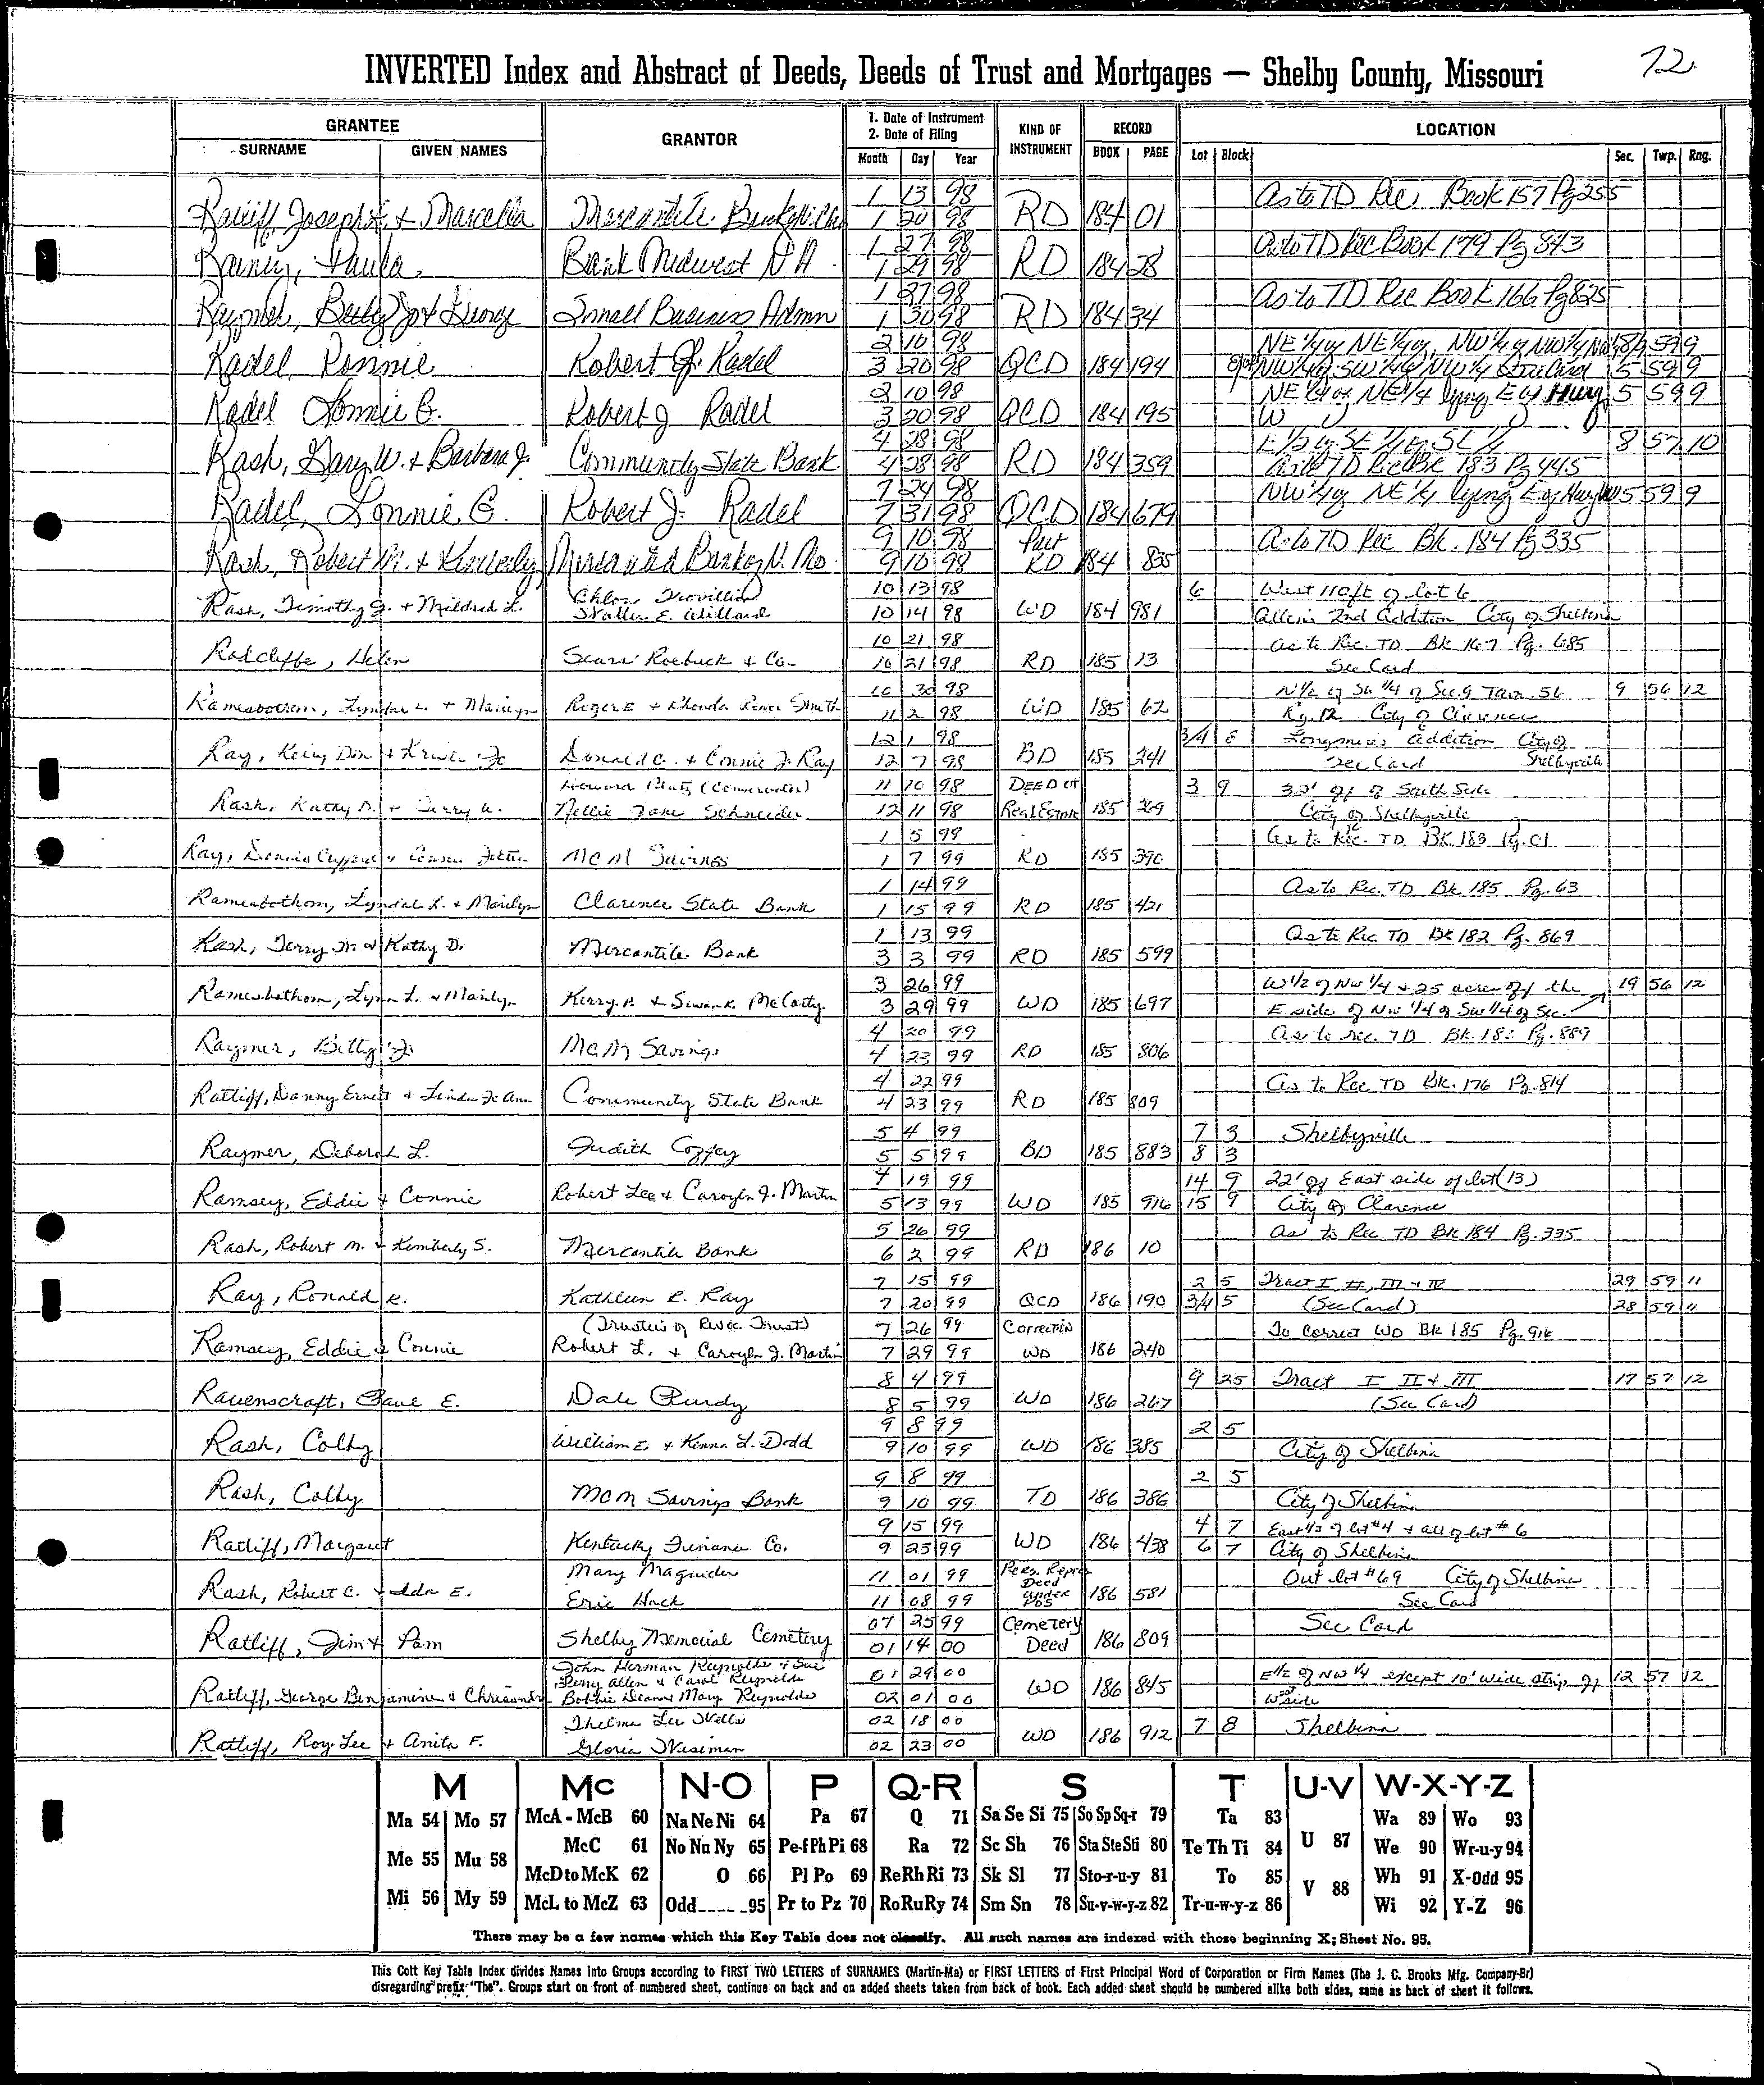 72
INVERTED Index and Abstract of Deeds, Deeds of Trust and Mortgages — Shelby County, Missouri
GRANTEE
SURNAME GIVEN NAMES
GRANTOR
1. Date of Instrument
2. Date of Filing
Month Day Year
KIND OF INSTRUMENT
RECORD
BOOK PAGE
LOCATION
Lot Block Sec. Twp. Rng.
1 13 98 As to TD Rec. Book 157 Pg 255
Ratliff, Joseph & Marcella Mercantile Bank 1 20 98 RD 184 01
1 27 98 As to TD Rec Book 179 Pg 843
Rainey, Paula Bank Midwest N.A. 1 29 98 RD 184 28
1 27 98 As to TD Rec Book 166 Pg 825
Raymer, Betty Jo & George Small Business Admn 1 30 98 RD 184 34
2 10 98 NE 1/4 of NE 1/4 of, NW 1/4 of NW 1/4
Radel Ronnie Robert J. Radel 3 20 98 QCD 184 194 NW 1/4 of SW 1/4 of NW 1/4 5 59 9
2 10 98 NE 1/4 of NE 1/4 lying E of Hwy 5 59 9
Radel Lonnie G. Robert J Radel 3 20 98 QCD 184 195 W
4 28 98 E 1/2 of SE 1/4 of SE 1/4 8 57 10
Rash, Gary W. & Barbara J. Community State Bank 4 28 98 RD 184 359 As to TD Rec Bk 183 Pg 445
7 24 98 NW 1/4 of NE 1/4 lying E of Hwy W 5 59 9
Radel, Lonnie G. Robert J. Radel 7 31 98 QCD 184 679
9 10 98 Part As to TD Rec Bk. 184 Pg 335
Rash, Robert M. & Kimberly Mercantile Bank of N. Mo 9 10 98 RD 184 835
Chloa Trovillion 10 13 98 6 West 110 ft of lot 6
Rash, Timothy J. & Mildred L. Walter E. Willard 10 14 98 WD 184 981 Allens 2nd Addition City of Shelbina
10 21 98 As to Rec. TD Bk 167 Pg. 685
Radcliffe, Helen Sears Roebuck & Co. 10 21 98 RD 185 13 See Card
10 30 98 N 1/2 of SE 1/4 of Sec. 9 Twn. 56 9 56 12
Ramesbothom, Lyndal L. & Marilyn Roger E & Rhonda Renee Smith 11 2 98 WD 185 62 Rg. 12 City of Clarence
12 1 98 3/4 E Longmires Addition City of
Ray, Kelly Don & Kristi Jo Donald C. & Connie J. Ray 12 7 98 BD 185 241 See Card Shelbyville
Howard Beatz (Conservator) 11 10 98 DEED of 3 9 33' off of South Side
Rash, Kathy D. & Terry W. Nellie Jane Schneider 12 11 98 Real Estate 185 269 City of Shelbyville
1 5 99 As to Rec. TD Bk. 183 Pg. 01
Ray, Dennis Clifford & Connie MCM Savings 1 7 99 RD 185 390
1 14 99 As to Rec. TD Bk 185 Pg. 63
Ramesbothom, Lyndal L. & Marilyn Clarence State Bank 1 15 99 RD 185 421
1 13 99 As to Rec TD Bk 182 Pg. 869
Rash, Terry W. & Kathy D. Mercantile Bank 3 3 99 RD 185 599
3 26 99 W 1/2 of NW 1/4 & 25 acres off the 19 56 12
Ramesbothom, Lynn L. & Marilyn Kerry P. & Susan K. McCarty 3 29 99 WD 185 697 E side of NW 1/4 of SW 1/4 of Sec.
4 20 99 As to rec. TD Bk. 182 Pg. 889
Raymer, Betty Jo MCM Savings 4 23 99 RD 185 806
4 22 99 As to Rec TD Bk. 176 Pg. 814
Ratliff, Danny Ernest & Linda Jo Ann Community State Bank 4 23 99 RD 185 809
5 4 99 7 3 Shelbyville
Raymer, Deborah L. Judith Coffey 5 5 99 BD 185 883 8 3
4 19 99 14 9 22' off East side of lot (13)
Ramsey, Eddie & Connie Robert Lee & Carolyn J. Martin 5 13 99 WD 185 916 15 9 City of Clarence
5 26 99 As to Rec. TD Bk 184 Pg. 335
Rash, Robert M. & Kimberly S. Mercantile Bank 6 2 99 RD 186 10
7 15 99 2 5 Tract I II, III & IV 29 59 11
Ray, Ronald K. Kathleen R. Ray 7 20 99 QCD 186 190 3/4 5 (See Card) 28 59 11
(Trustees of Revoc. Trust) 7 26 99 Correction To Correct WD Bk 185 Pg. 916
Ramsey, Eddie & Connie Robert L. & Carolyn J. Martin 7 29 99 WD 186 240
8 4 99 9 25 Tract I II & III 17 57 12
Ravenscraft, Paul E. Dale Purdy 8 5 99 WD 186 267 (See Card)
9 8 99 2 5
Rash, Colby William E. & Kenna L. Dodd 9 10 99 WD 186 385 City of Shelbina
9 8 99 2 5
Rash, Colby MCM Savings Bank 9 10 99 TD 186 386 City of Shelbina
9 15 99 4 7 East 1/2 of lot #4 & all of lot #6
Ratliff, Margaret Kentucky Finance Co. 9 23 99 WD 186 438 6 7 City of Shelbina
Mary Magruder 11 01 99 Pers. Repres Deed Out Lot #69 City of Shelbina
Rash, Robert C. & Ida E. Eric Hack 11 08 99 under POS 186 581 See Card
07 25 99 Cemetery See Card
Ratliff, Jim & Pam Shelby Memorial Cemetery 01 14 00 Deed 186 809
John Herman Reynolds & Sue
Perry Allen & Carol Reynolds 01 29 00 E 1/2 of NW 1/4 except 10' wide strip off 12 57 12
Ratliff, George Benjamine & Bobbie Deanna Mary Reynolds 02 01 00 WD 186 845 West side
Thelma Lee Wells 02 18 00 7 8 Shelbina
Ratliff, Roy Lee & Anita F. Gloria Wiseman 02 23 00 WD 186 912
M Mc N-O P Q-R S T U-V W-X-Y-Z
Ma 54 Mo 57 McA - McB 60 Na Ne Ni 64 Pa 67 Q 71 Sa Se Si 75 So Sp Sq-r 79 Ta 83 U 87 Wa 89 Wo 93
Me 55 Mu 58 McC 61 No Nu Ny 65 Pe-f Ph Pi 68 Ra 72 Sc Sh 76 Sta Ste Sti 80 Te Th Ti 84 We 90 Wr-u-y 94
McD to McK 62 O 66 Pl Po 69 Re Rh Ri 73 Sk Sl 77 Sto-r-u-y 81 To 85 V 88 Wh 91 X-Odd 95
Mi 56 My 59 McL to McZ 63 Odd 95 Pr to Pz 70 Ro Ru Ry 74 Sm Sn 78 Su-v-w-y-z 82 Tr-u-w-y-z 86 Wi 92 Y-Z 96
There may be a few names which this Key Table does not classify. All such names are indexed with those beginning X; Sheet No. 95.
This Cott Key Table Index divides Names into Groups according to FIRST TWO LETTERS of SURNAMES (Martin-Ma) or FIRST LETTERS of First Principal Word of Corporation or Firm Names (The J. C. Brooks Mfg. Company-Br)
disregarding prefix "The". Groups start on front of numbered sheet, continue on back and on added sheets taken from back of book. Each added sheet should be numbered alike both sides, same as back of sheet it follows.